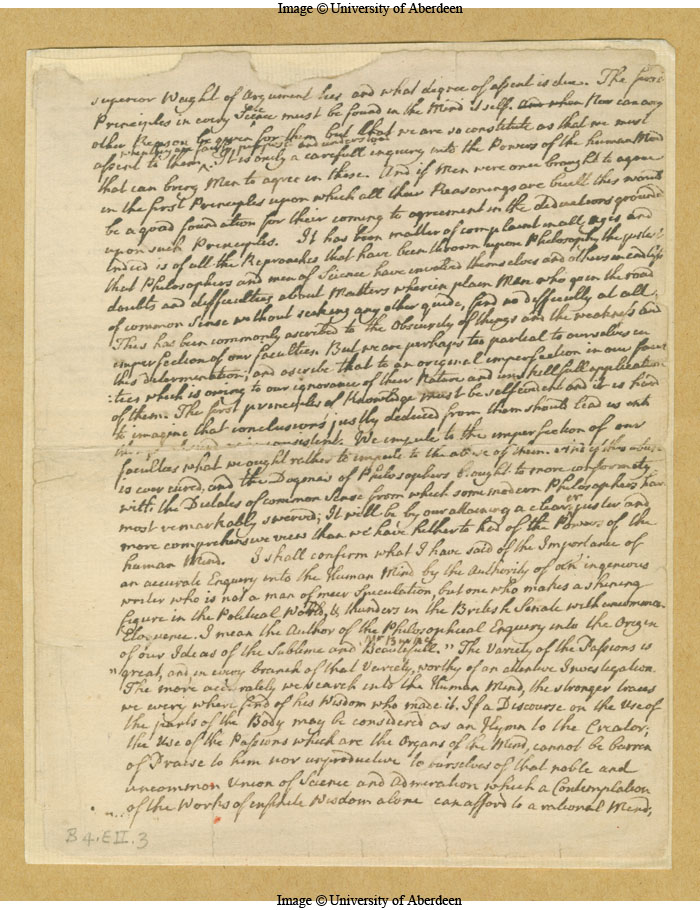 Image © University of Aberdeen
superior Weight of Argument lies, and what degree of assent is due. The first
Principles in every Science must be found in the Mind it self. Nor can any
other Reason be given for them but that we are so constitute as that we must
assent to them when they are fairly proposed and understood. It is only a carefull enquiry into the Powers of the human Mind
that can bring Men to agree in these. And if Men were once brought to agree
in the first Principles upon which all their Reasonings are built this would
be a good foundation for their coming to agreement in the deductions grounded
upon such Principles. It has been matter of complaint in all ages and
indeed is of all the Reproaches that have been thrown upon Philosophy the justest
that Philosophers and men of Science have involved themselves and others in endless
doubts and difficulties about Matters wherein plain Men who go on the road
of common Sense without seeking any other guide, find no difficulty at all.
This has been commonly ascribed to the Obscurity of things and the weakness and
imperfection of our faculties. But we are perhaps too partial to ourselves in
this determination; and ascribe that to an original imperfection in our facul
:ties which is owing to our ignorance of their Nature and unskillfull application
of them. The first principles of Knowledge must be self evident and it is hard
to imagine that conclusions justly deduced from them should lead us into
inconsistent. We impute to the imperfection of our
faculties what we ought rather to impute to the abuse of them. And if this abuse
is ever cured, and the Dogmas of Philosophers brought to more conformity
with the Dictates of common Sense from which some modern Philosophers have
most remarkably swerved; It will be by our attaining a clearer juster and
more comprehensive view than we have hitherto had of the Powers of the
human Mind. I shall confirm what I have said of the Importance of
an accurate Enquiry into the Human Mind by the Authority of an ingenious
writer who is not a man of meer Speculation, but one who makes a shining
figure in the Political World, & thunders in the British Senate with uncommon
Eloquence. I mean the Author of the Philosophical Enquiry into the Origin
Mr Burke
of our Ideas of the Sublime and Beautefull. "The Variety of the Passions is
"great, and, in every branch of that Variety, worthy of an attentive Investigation.
The more accurately we search into the Human Mind, the stronger traces
we every where find of his Wisdom who made it. If a Discourse on the Use of
the parts of the Body may be considered as an Hymn to the Creator;
the Use of the Passions which are the Organs of the Mind, cannot be barren
of Praise to him nor unproductive to ourselves of that noble and
uncommon Union of Science and Admiration which a Contemplation
of the Works of infinite Wisdom alone can afford to a rational Mind;
B 4.E II. 3
Image © University of Aberdeen